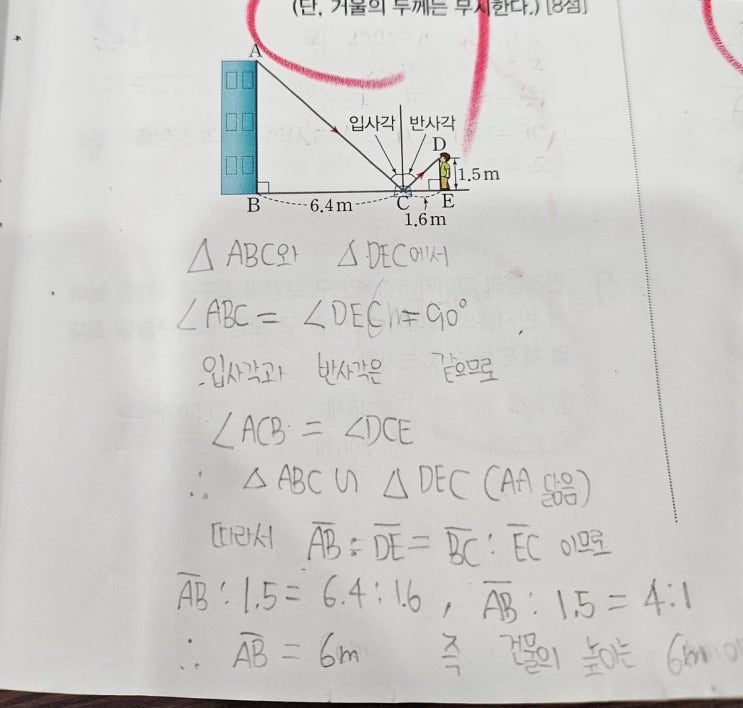 (단, 거울의 두께는 무시한다.) [8점]
A
입사각 반사각
D
1.5m
B 6.4m C E
1.6m
△ ABC와 △ DEC에서
∠ABC = ∠DEC = 90°
입사각과 반사각은 같으므로
∠ACB = ∠DCE
∴ △ ABC ∽ △ DEC (AA 닮음)
따라서 AB : DE = BC : EC 이므로
AB : 1.5 = 6.4 : 1.6 , AB : 1.5 = 4 : 1
∴ AB = 6m 즉 건물의 높이는 6m